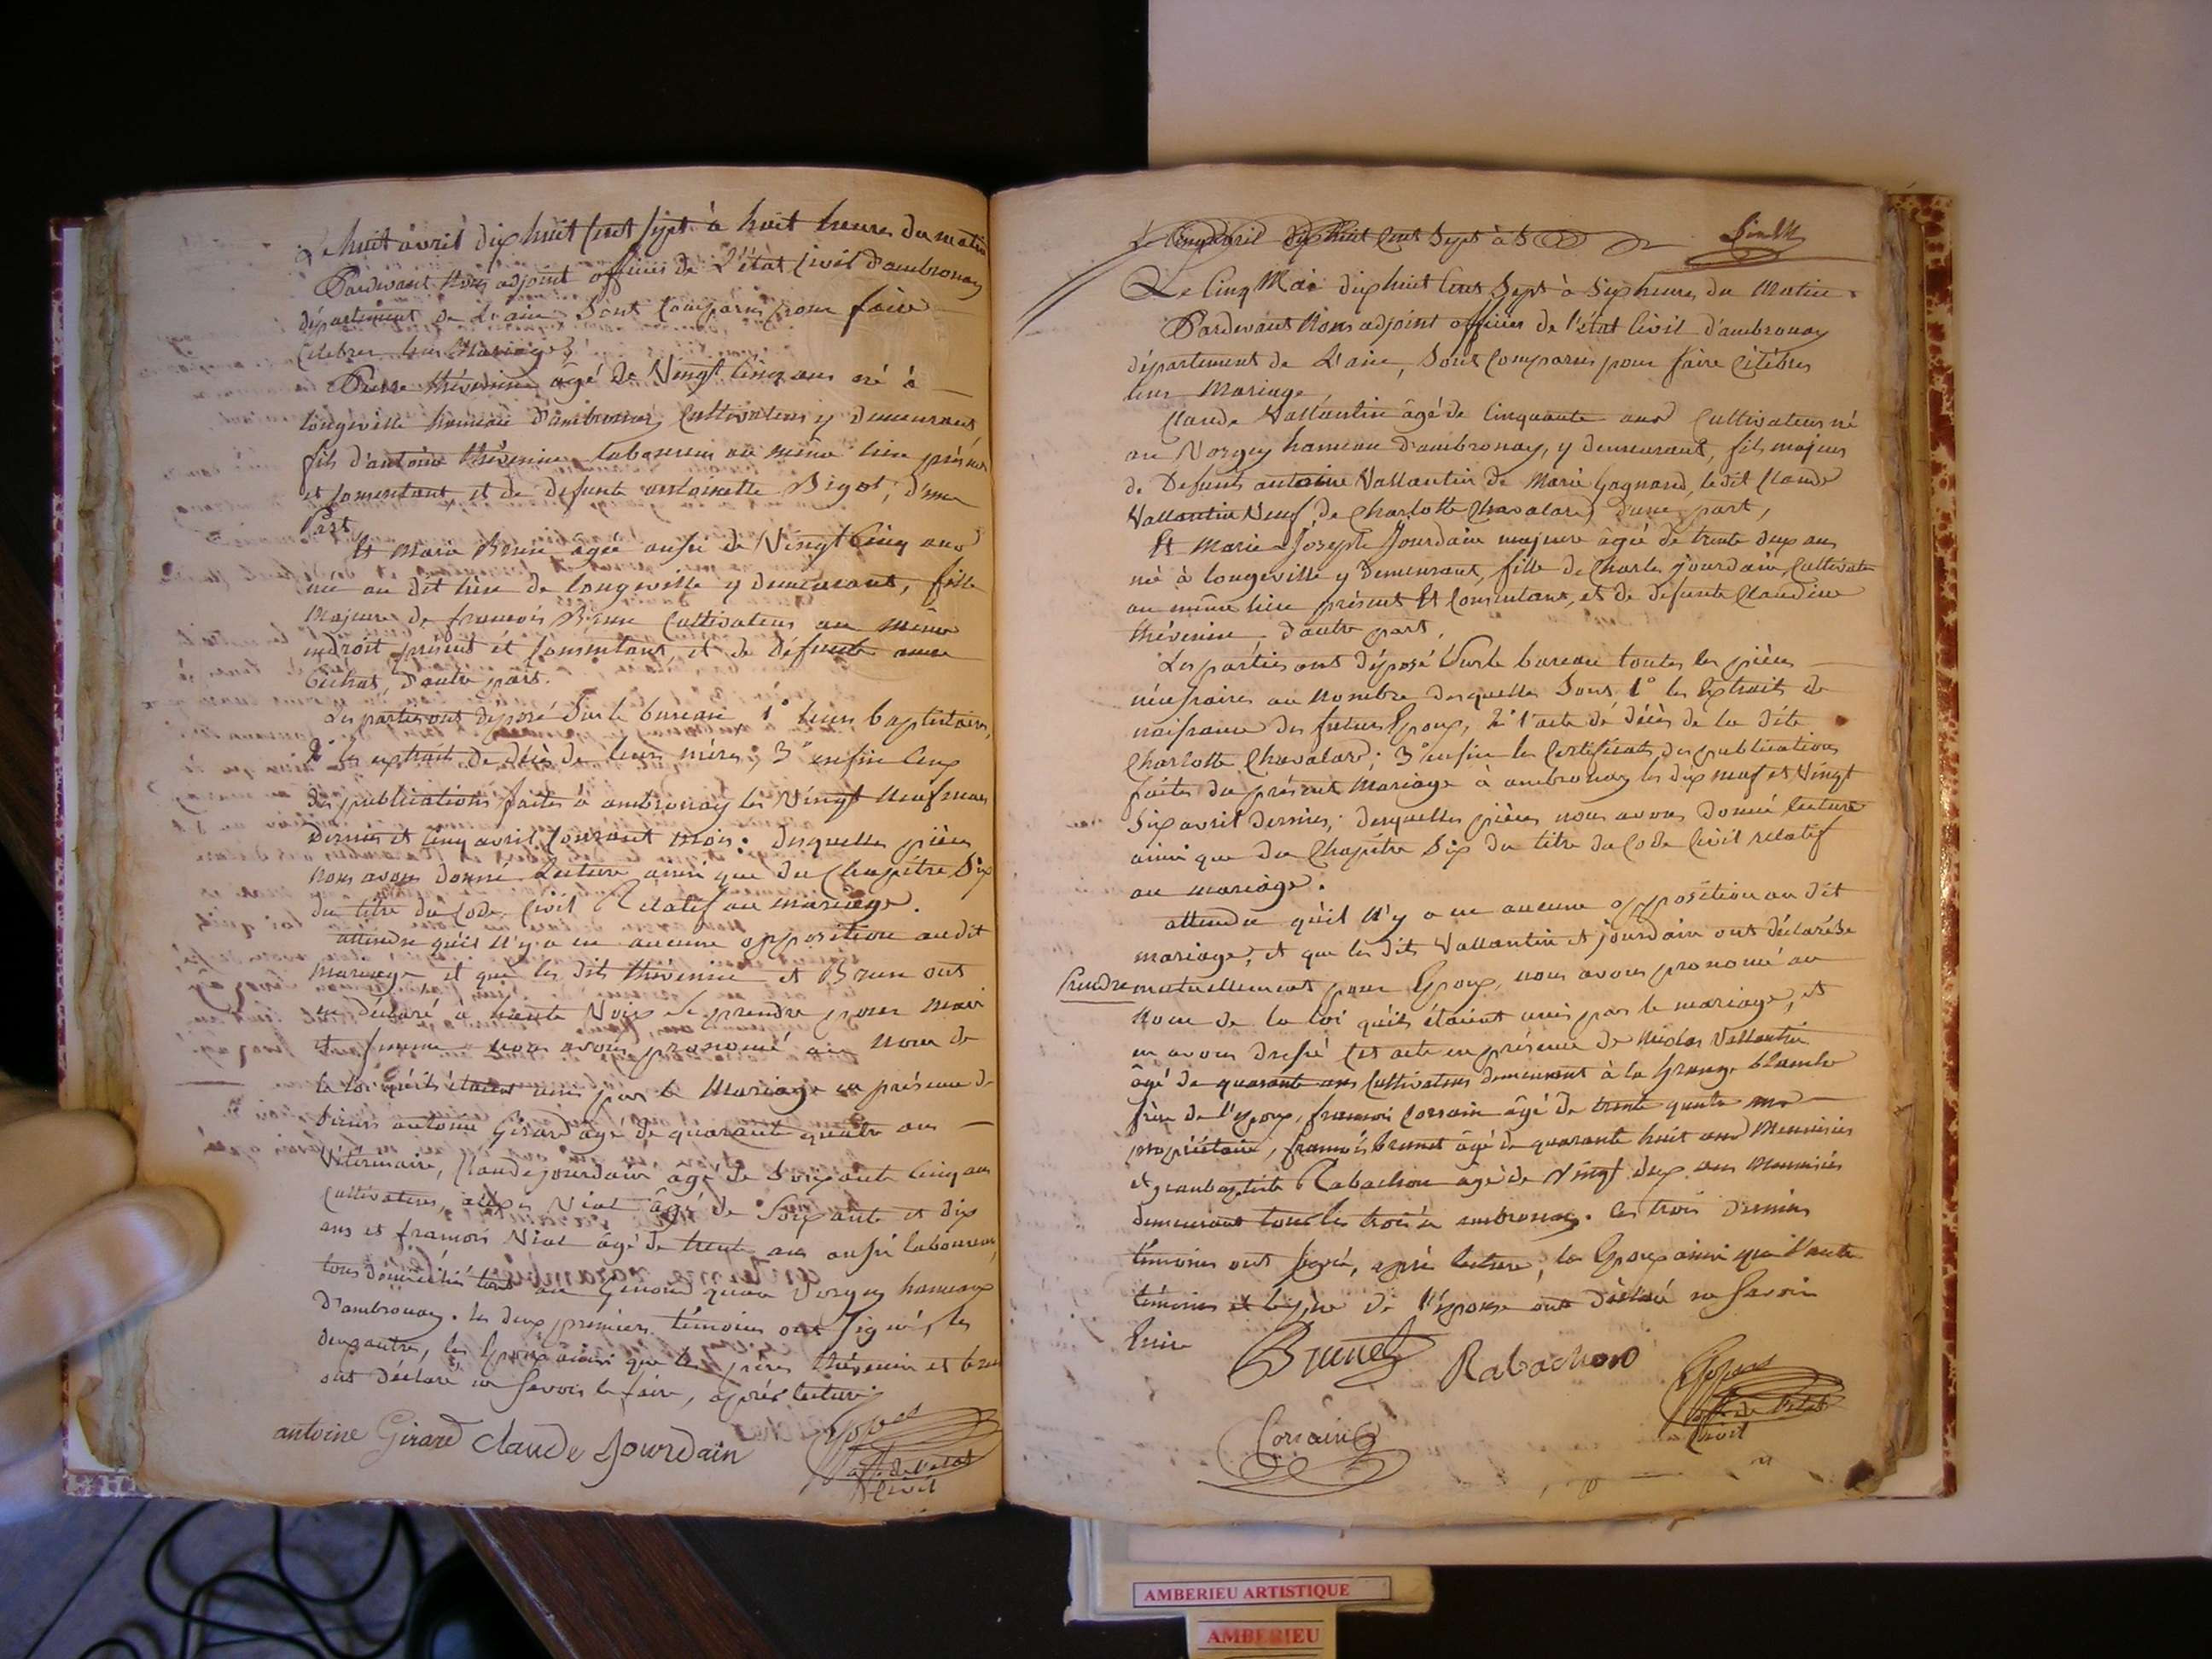 Le huit avril dix huit Cent Sept à huit heures du matin
Pardevant Nous adjoint officier de L'état Civil d'ambronay
département de L'ain Sont Comparus pour faire
Célébrer leur Mariage,
Pierre thévenin âgé de Vingt Cinq ans né à
longeville hameau d'ambronay Cultivateur y demeurant
fils d'antoine thévenin laboureur au même lieu présent
et Consentant et de defunte antoinette Bigot, d'une
Part
Et Marie Brun âgée aussi de Vingt Cinq ans
née au dit lieu de longeville y demeurant, fille
Majeure de francois Brun Cultivateur au même
endroit présent et Consentant, et de défunte anne
d'autre part.
Les parties ont deposé Sur le bureau 1° leurs baptistaires,
2° les extraits de décès de leurs mères, 3° enfin Ceux
des publications faites à ambronay les Vingt Neuf mars
dernier et Cinq avril Courant mois: desquelles pièces
Nous avons donné Lecture ainsi que du Chapitre Six
du titre du Code Civil Relatif au mariage.
attendu qu'il N'y a eu aucune opposition audit
mariage et que les dits thévenin et Brun ont
déclaré à haute Voix Se prendre pour mari
et femme nous avons prononcé au Nom de
la loi qu'ils étaient unis par le Mariage en présence de
Sieurs antoine Girard âgé de quarante quatre ans
Vétérinaire, Claude jourdain âgé de Soixante Cinq ans
Cultivateur, Vial âgé de Soixante et dix
ans et francois Vial âgé de trente ans aussi laboureur,
tous domiciliés tant au Genoud qu'au Vorgey hameaux
d'ambronay. les deux premiers témoins ont Signé, les
deux autres, les Epoux ainsi que les pères thévenin et brun
ont déclaré ne Savoir le faire, après lecture
antoine Girard Claude Jourdain
off. de l'état
Civil
Le Cinq avril dix huit Cent Sept à
Le Cinq Mai dix huit Cent Sept à Six heures du Matin
Pardevant Nous adjoint officier de l'état Civil d'ambronay
département de L'ain, Sont Comparus pour faire Célébrer
leur Mariage,
Claude Vallantin âgé de Cinquante ans Cultivateur né
au Vorgey hameau d'ambronay, y demeurant, fils majeur
de Defunts antoine Vallantin de Marie Gagnard, ledit Claude
Vallantin Veuf de Charlotte Chavalard, d'une part,
Et Marie Josepte Jourdain majeure âgée de trente deux ans
née à longeville y demeurant, fille de Charles jourdain, Cultivateur
au même lieu présent Et Consentant, et de defunte Claudine
thévenin, d'autre part,
Les parties ont déposé Sur le bureau toutes les pièces
nécessaires au Nombre desquelles Sont 1° les Extraits de
naissance des futurs Epoux, 2° l'acte de décès de la dite
Charlotte Chavalard; 3° enfin les Certificats des publications
faites du présent Mariage à ambronay les dix neuf et Vingt
Six avril dernier; desquelles pièces nous avons donné lecture
ainsi que du Chapitre Six du titre du Code Civil relatif
au mariage.
attendu qu'il N'y a eu aucune opposition au dit
mariage, et que les dits Vallantin et jourdain ont déclaré Se
Prendre mutuellement pour Epoux, nous avons prononcé au
Nom de la loi qu'ils étaient unis par le mariage, et
en avons dressé Cet acte en présence de Nicolas Vallantin
âgé de quarante ans Cultivateur demeurant à la Grange blanche
frère de l'époux, francois Corsain âgé de trente quatre ans
propriétaire, francois brunet âgé de quarante huit ans Menuisier
et jeanbaptiste Rabachon âgé de Vingt deux ans Menuisier
demeurant tous les trois à ambronay. les trois derniers
témoins ont Signé, après lecture, les Epoux ainsi que l'autre
témoin et le père de l'épouse ont déclaré ne Savoir
Ecrire
Brunet Rabachon
off. de l'état
Civil
Corsain
AMBERIEU ARTISTIQUE
AMBERIEU